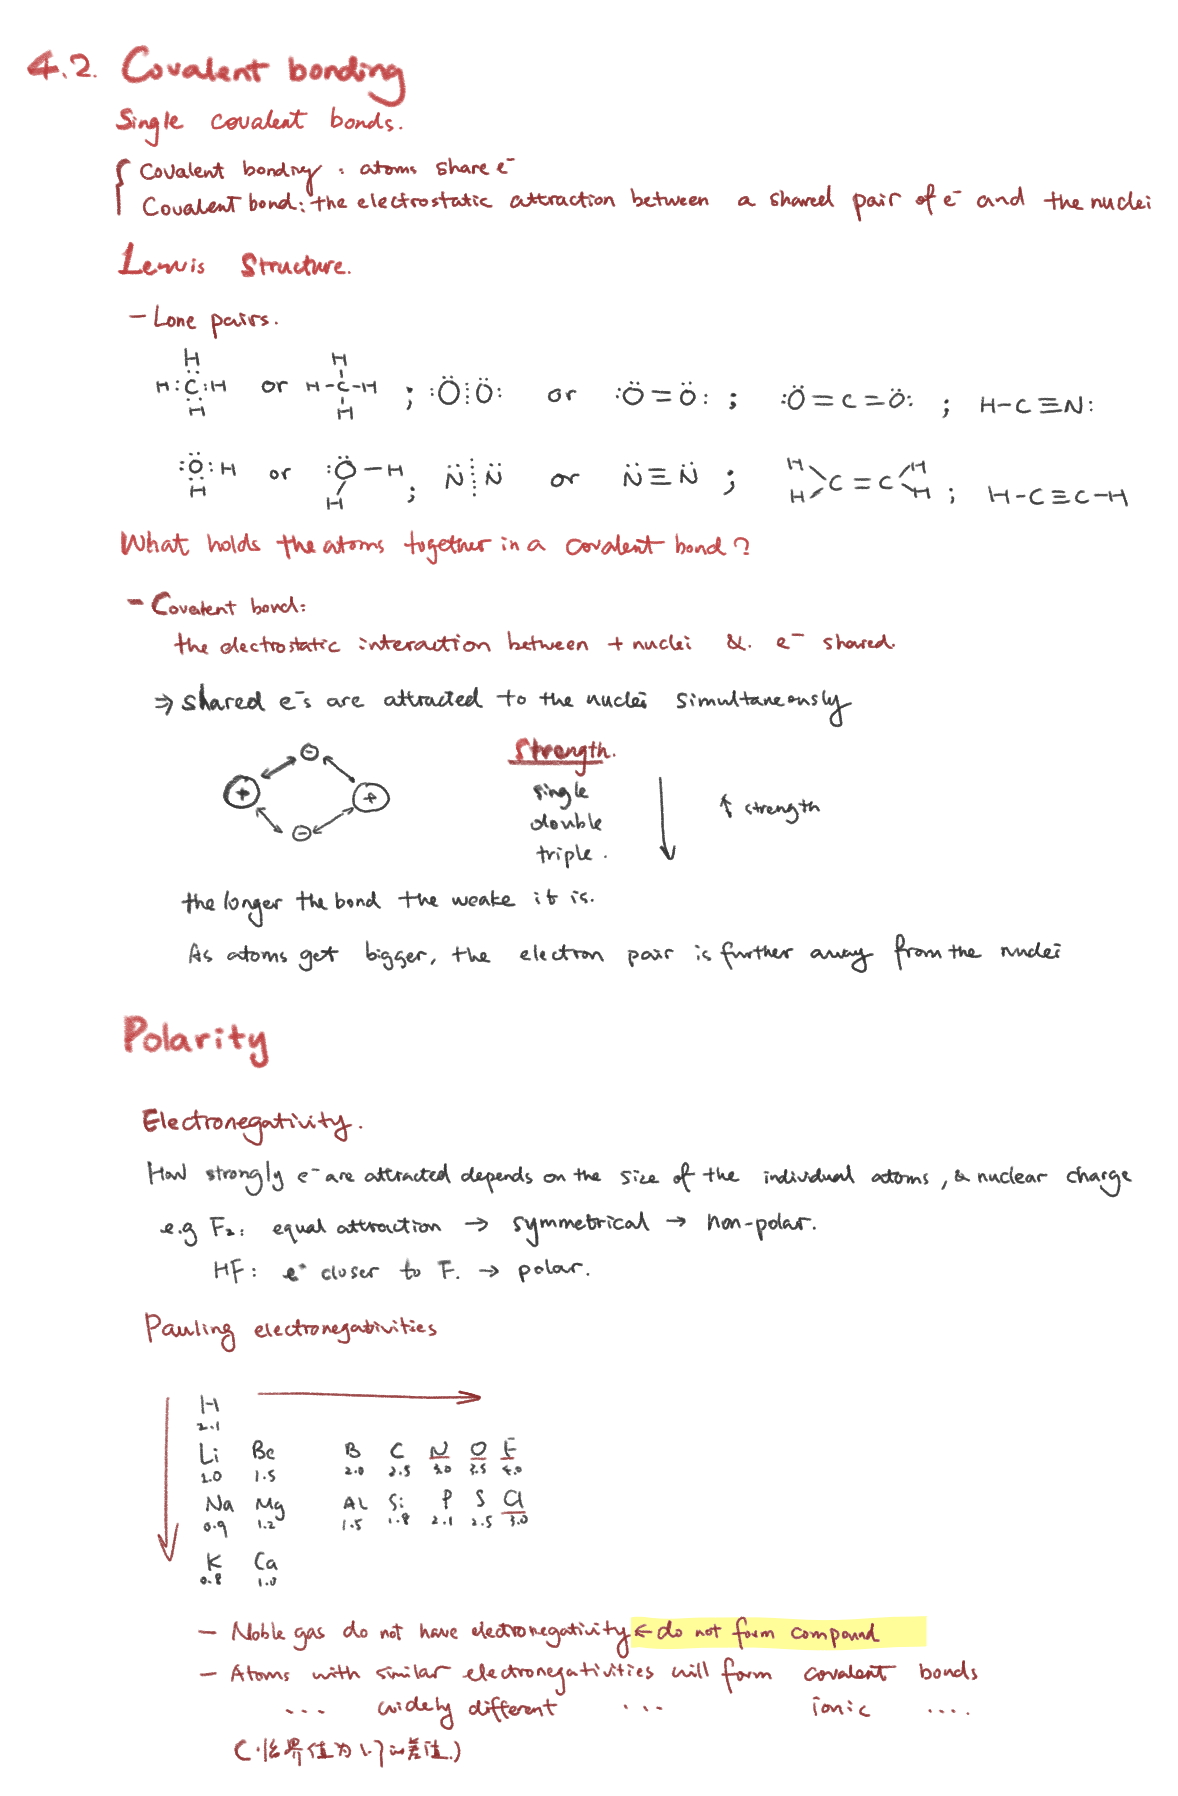 4.2. Covalent bonding
Single covalent bonds.
Covalent bonding : atoms share e⁻
Covalent bond: the electrostatic attraction between a shared pair of e⁻ and the nuclei
Lewis Structure.
- Lone pairs.
H H
H:C:H or H-C-H ; :Ö⋮Ö: or :Ö=Ö: ; :Ö=C=Ö: ; H-C≡N:
H H
:Ö:H or :Ö-H ; N̈⋮N̈ or N̈≡N̈ ; H H C=C H H ; H-C≡C-H
H H
What holds the atoms together in a covalent bond?
- Covalent bond:
the electrostatic interaction between + nuclei & e⁻ shared.
⇒ shared e⁻s are attracted to the nuclei simultaneously
+ - + -
Strength.
single
double
triple.
↑ strength
the longer the bond the weake it is.
As atoms get bigger, the electron pair is further away from the nuclei
Polarity
Electronegativity.
How strongly e⁻ are attracted depends on the size of the individual atoms, & nuclear charge
e.g F₂: equal attraction → symmetrical → non-polar.
HF: e⁻ closer to F. → polar.
Pauling electronegativities
H
2.1
Li Be B C N O F
1.0 1.5 2.0 2.5 3.0 3.5 4.0
Na Mg AL Si P S Cl
0.9 1.2 1.5 1.8 2.1 2.5 3.0
K Ca
0.8 1.0
- Noble gas do not have electronegativity ← do not form compound
- Atoms with similar electronegativities will form covalent bonds
... widely different ... ionic ....
(临界值为1.7的差值.)